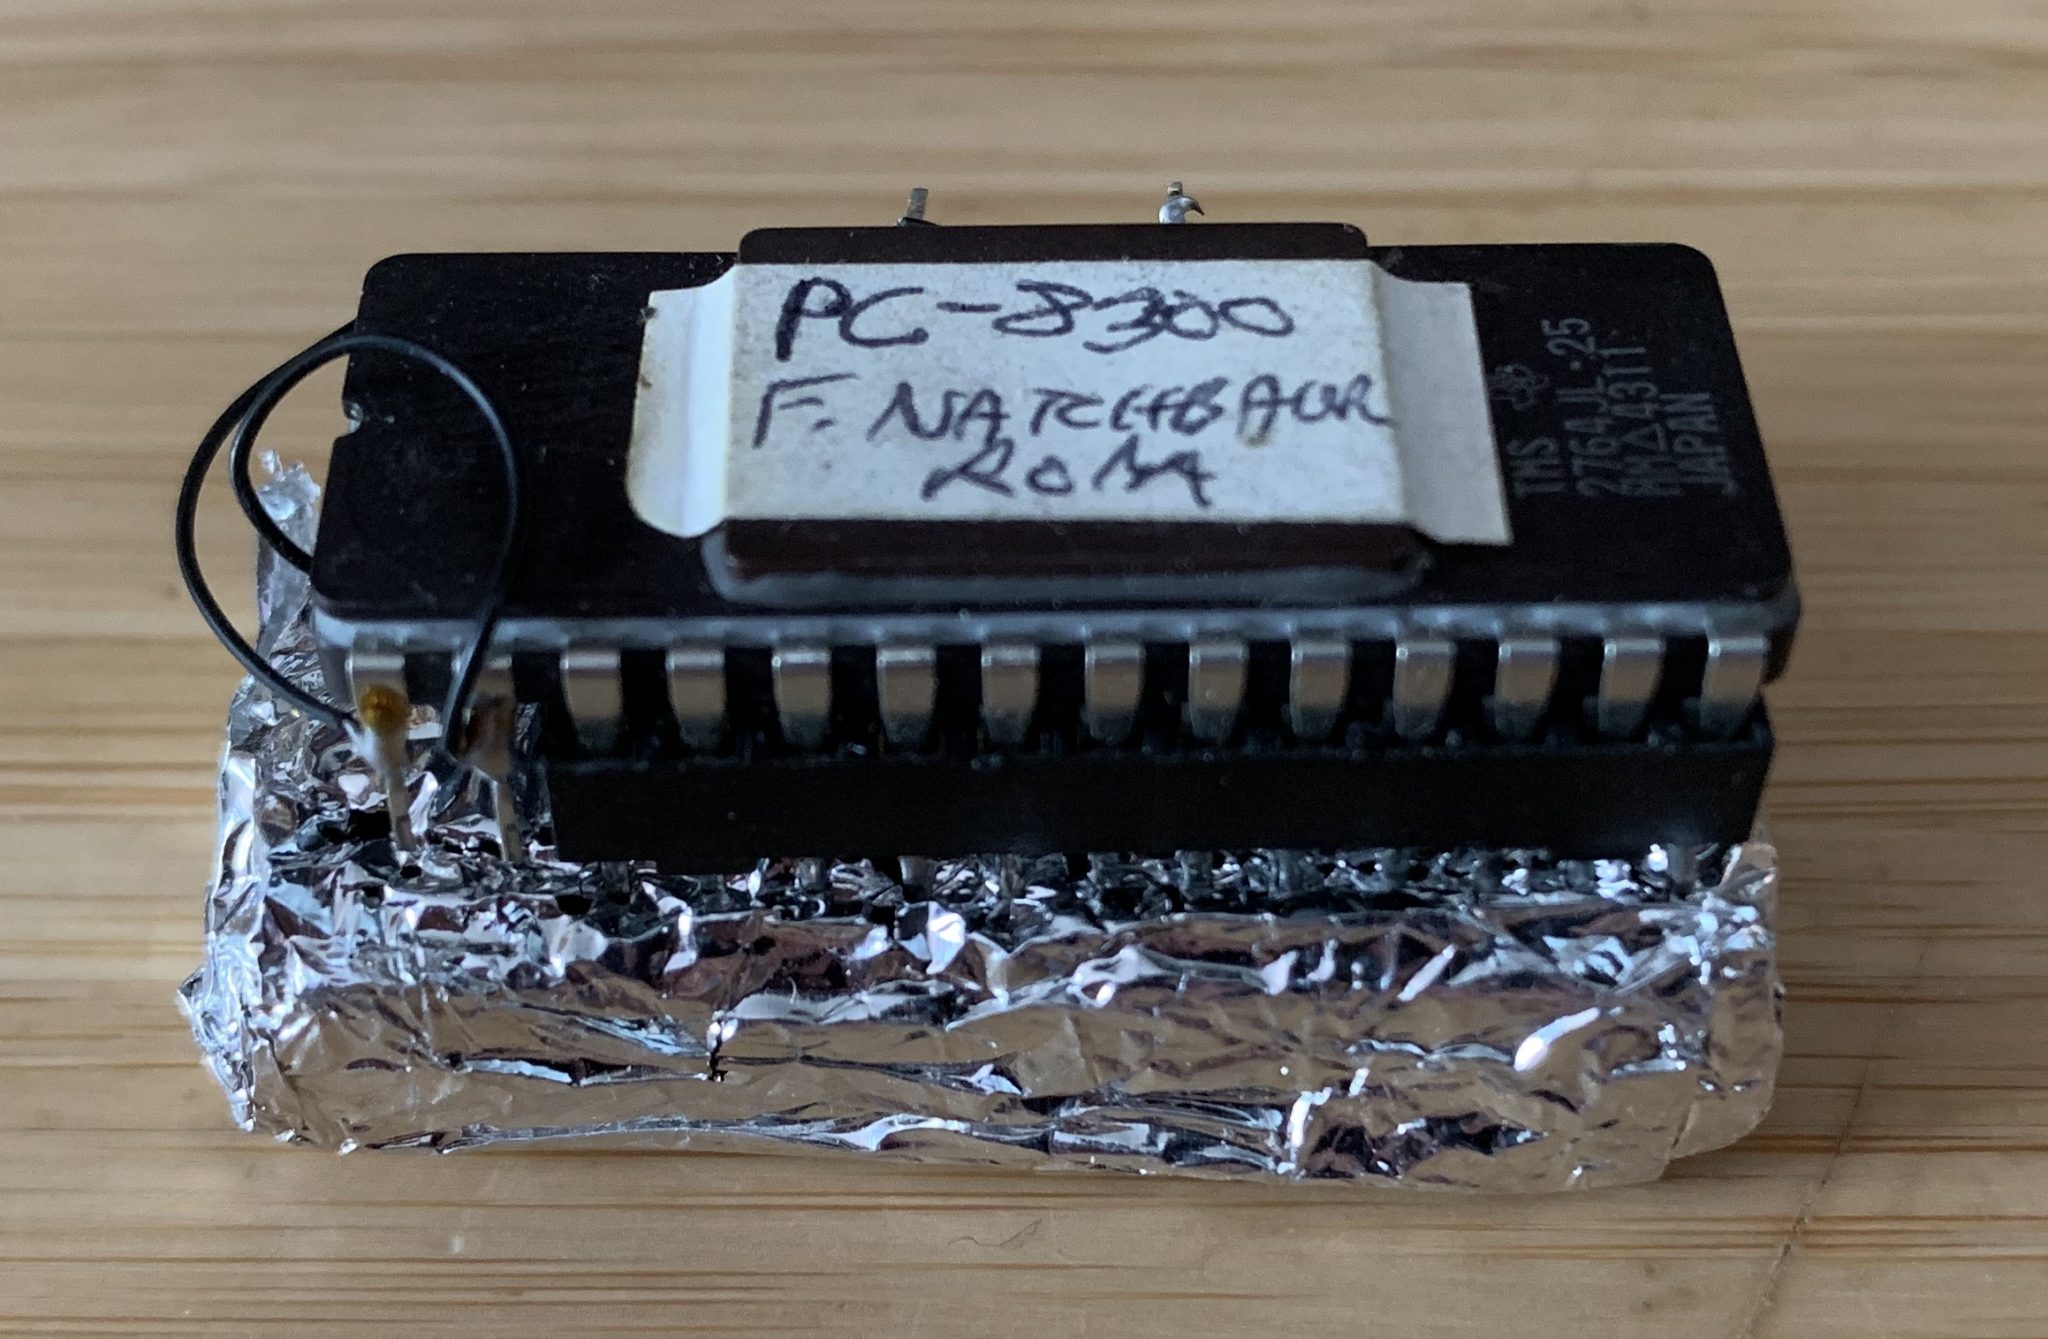 PC-8300
F. NATCHBAUR
ROM
TMS
2764JL-25
JAPAN